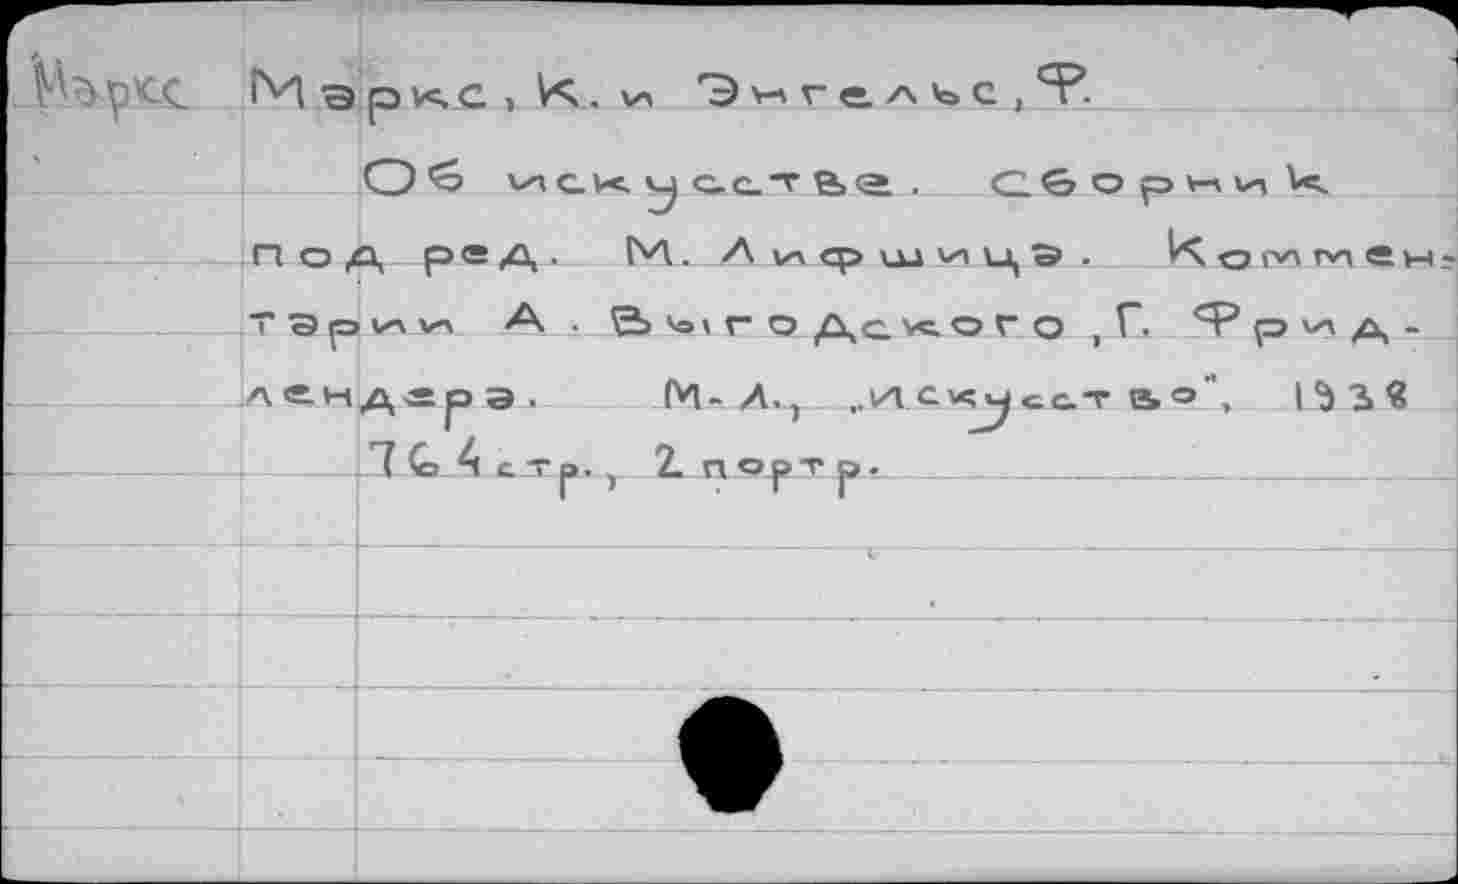 Маркс Маркс, К. и Энгельс, Ф.
Об искусстве. Сборник
под ред. М. Лифшица. Коммен-
тарии А. Выгодского, Г. Фрид-
лендера. М-Л., „Искусство", 1938
764 стр., 2 портр.